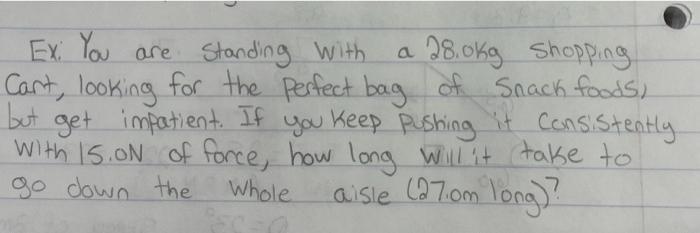 Ex: You are standing with a 28.0kg shopping
Cart, looking for the perfect bag of snack foods,
but get impatient. If you keep pushing it consistently
with 15.0N of force, how long will it take to
go down the whole aisle (27.0m long)?